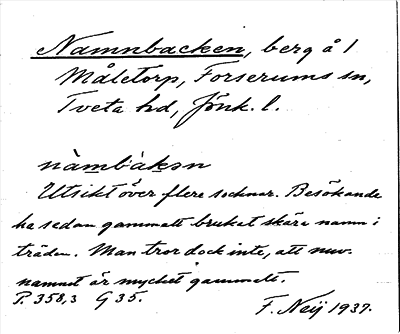 Namnbacken, berg å 1
Måletorp, Forserums sn,
Tveta hd, Jönk. l.
nàmbàkən
Utsikt över flere socknar. Besökande
ha sedan gammalt brukat skära namn i
träden. Man tror dock inte, att nuv.
namnet är mycket gammalt.
P. 358,3 G 35.
F. Neij 1937.